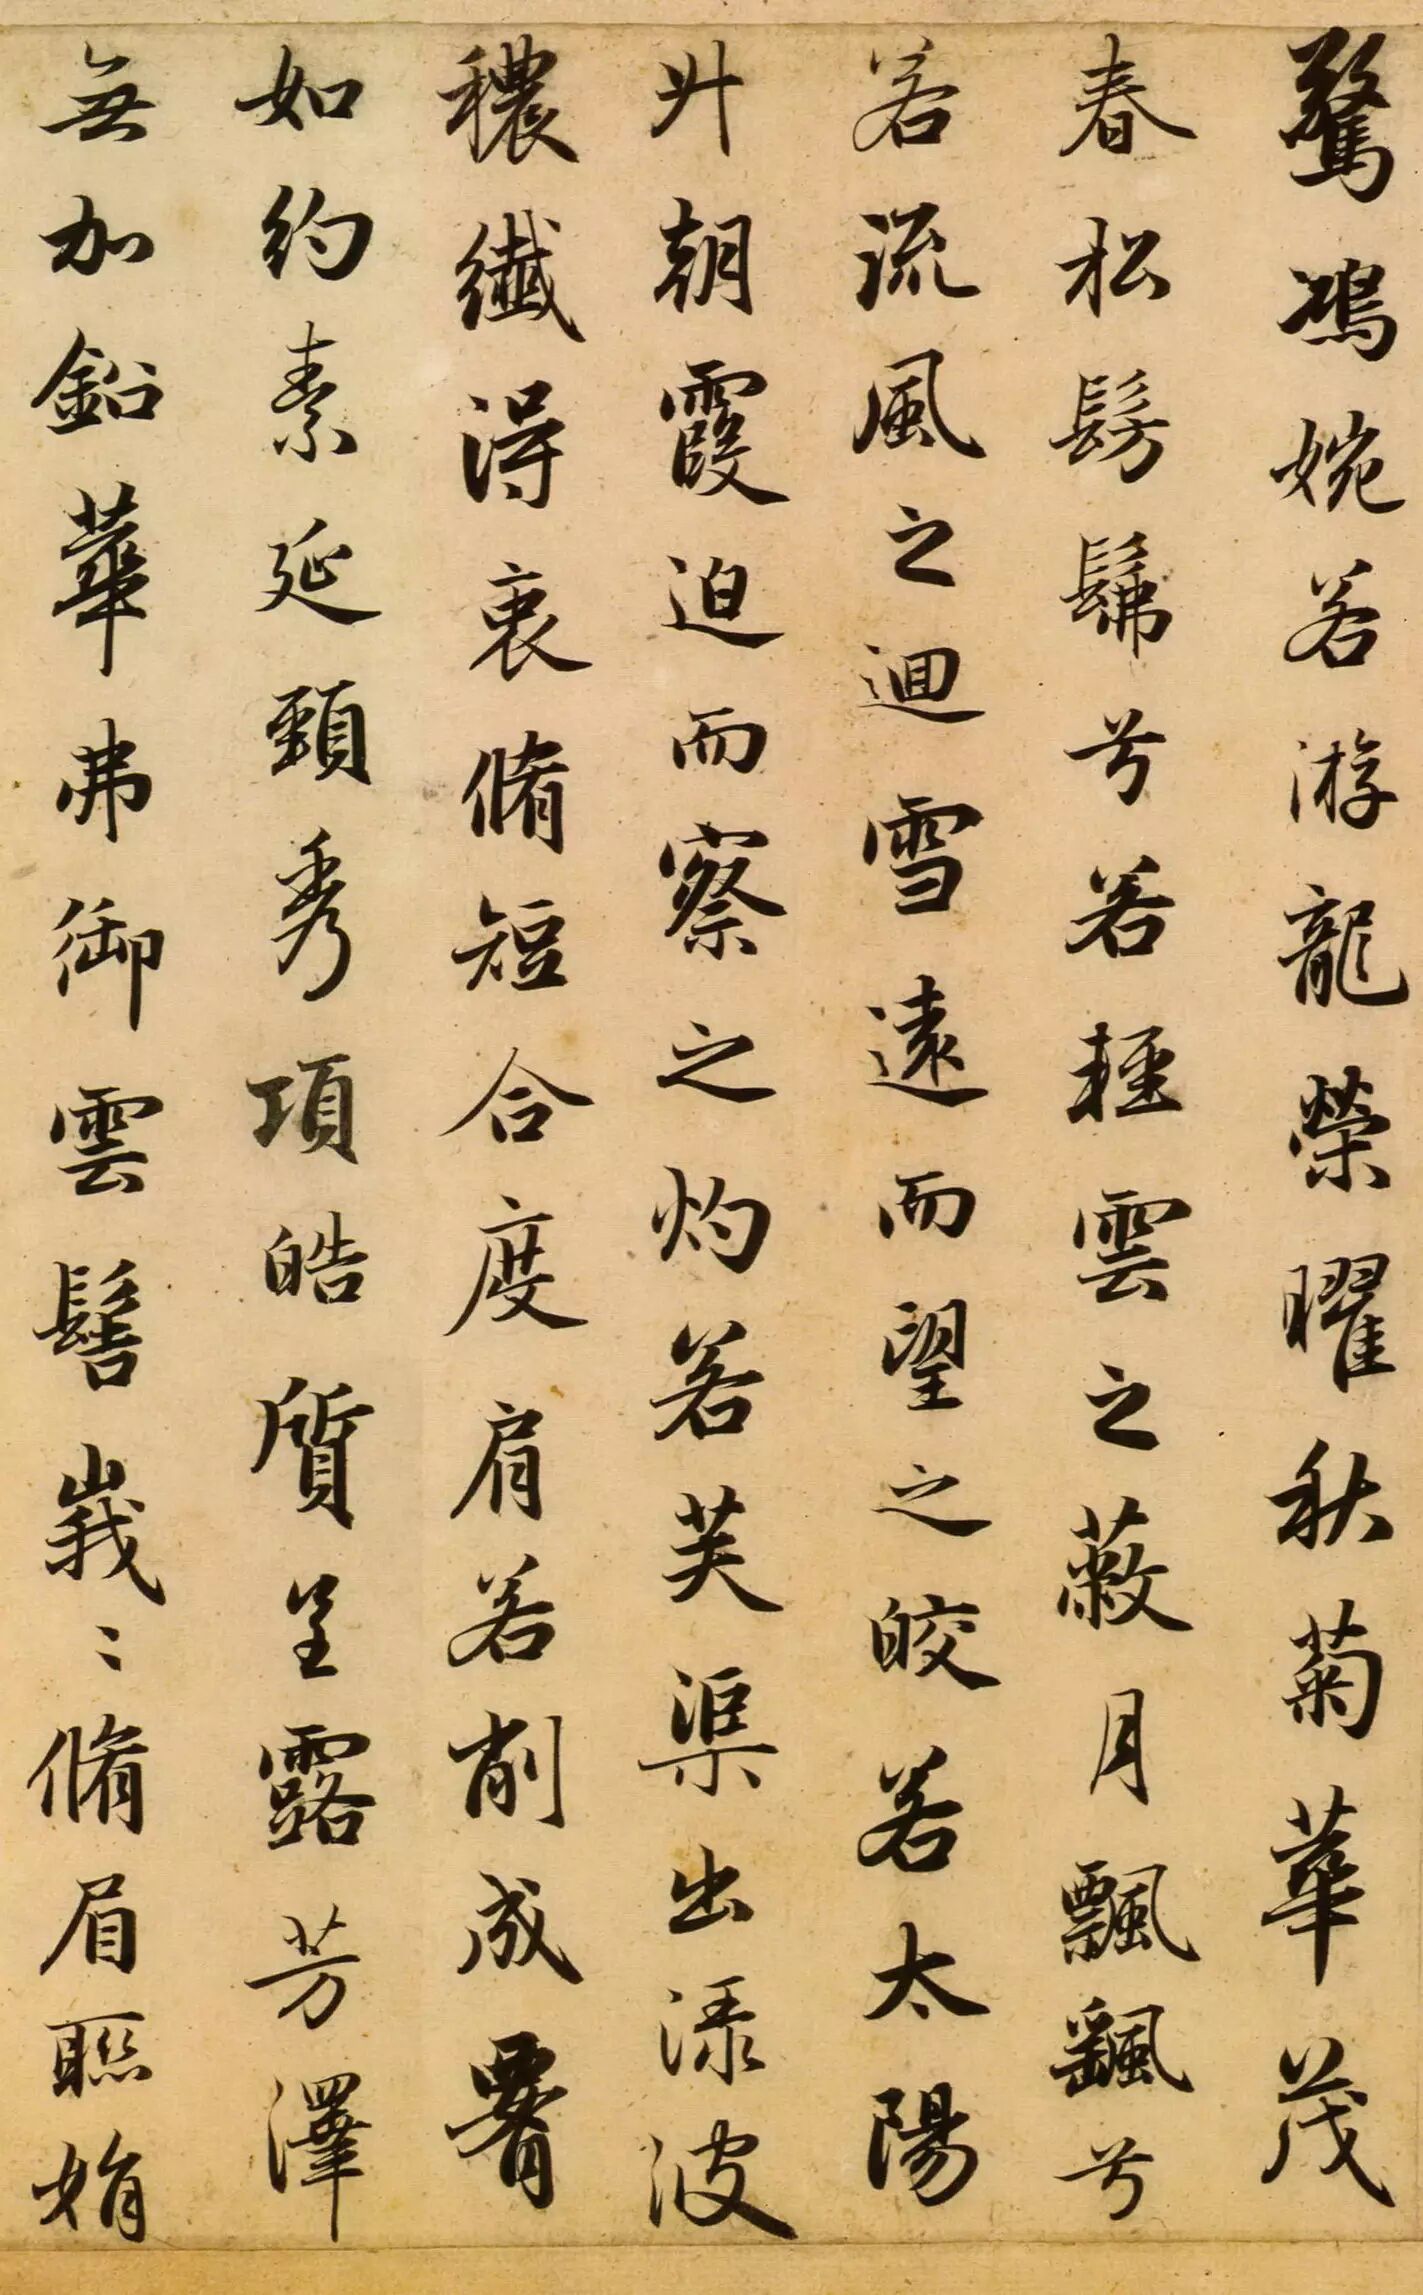 驚鴻婉若游龍榮曜秋菊華茂
春松髣髴兮若輕雲之蔽月飄颻兮
若流風之迴雪遠而望之皎若太陽
升朝霞迫而察之灼若芙渠出淥波
穠纖得衷脩短合度肩若削成𦝫
如約素延頸秀項皓質呈露芳澤
無加鉛華弗御雲髻峩〻脩眉聯娟